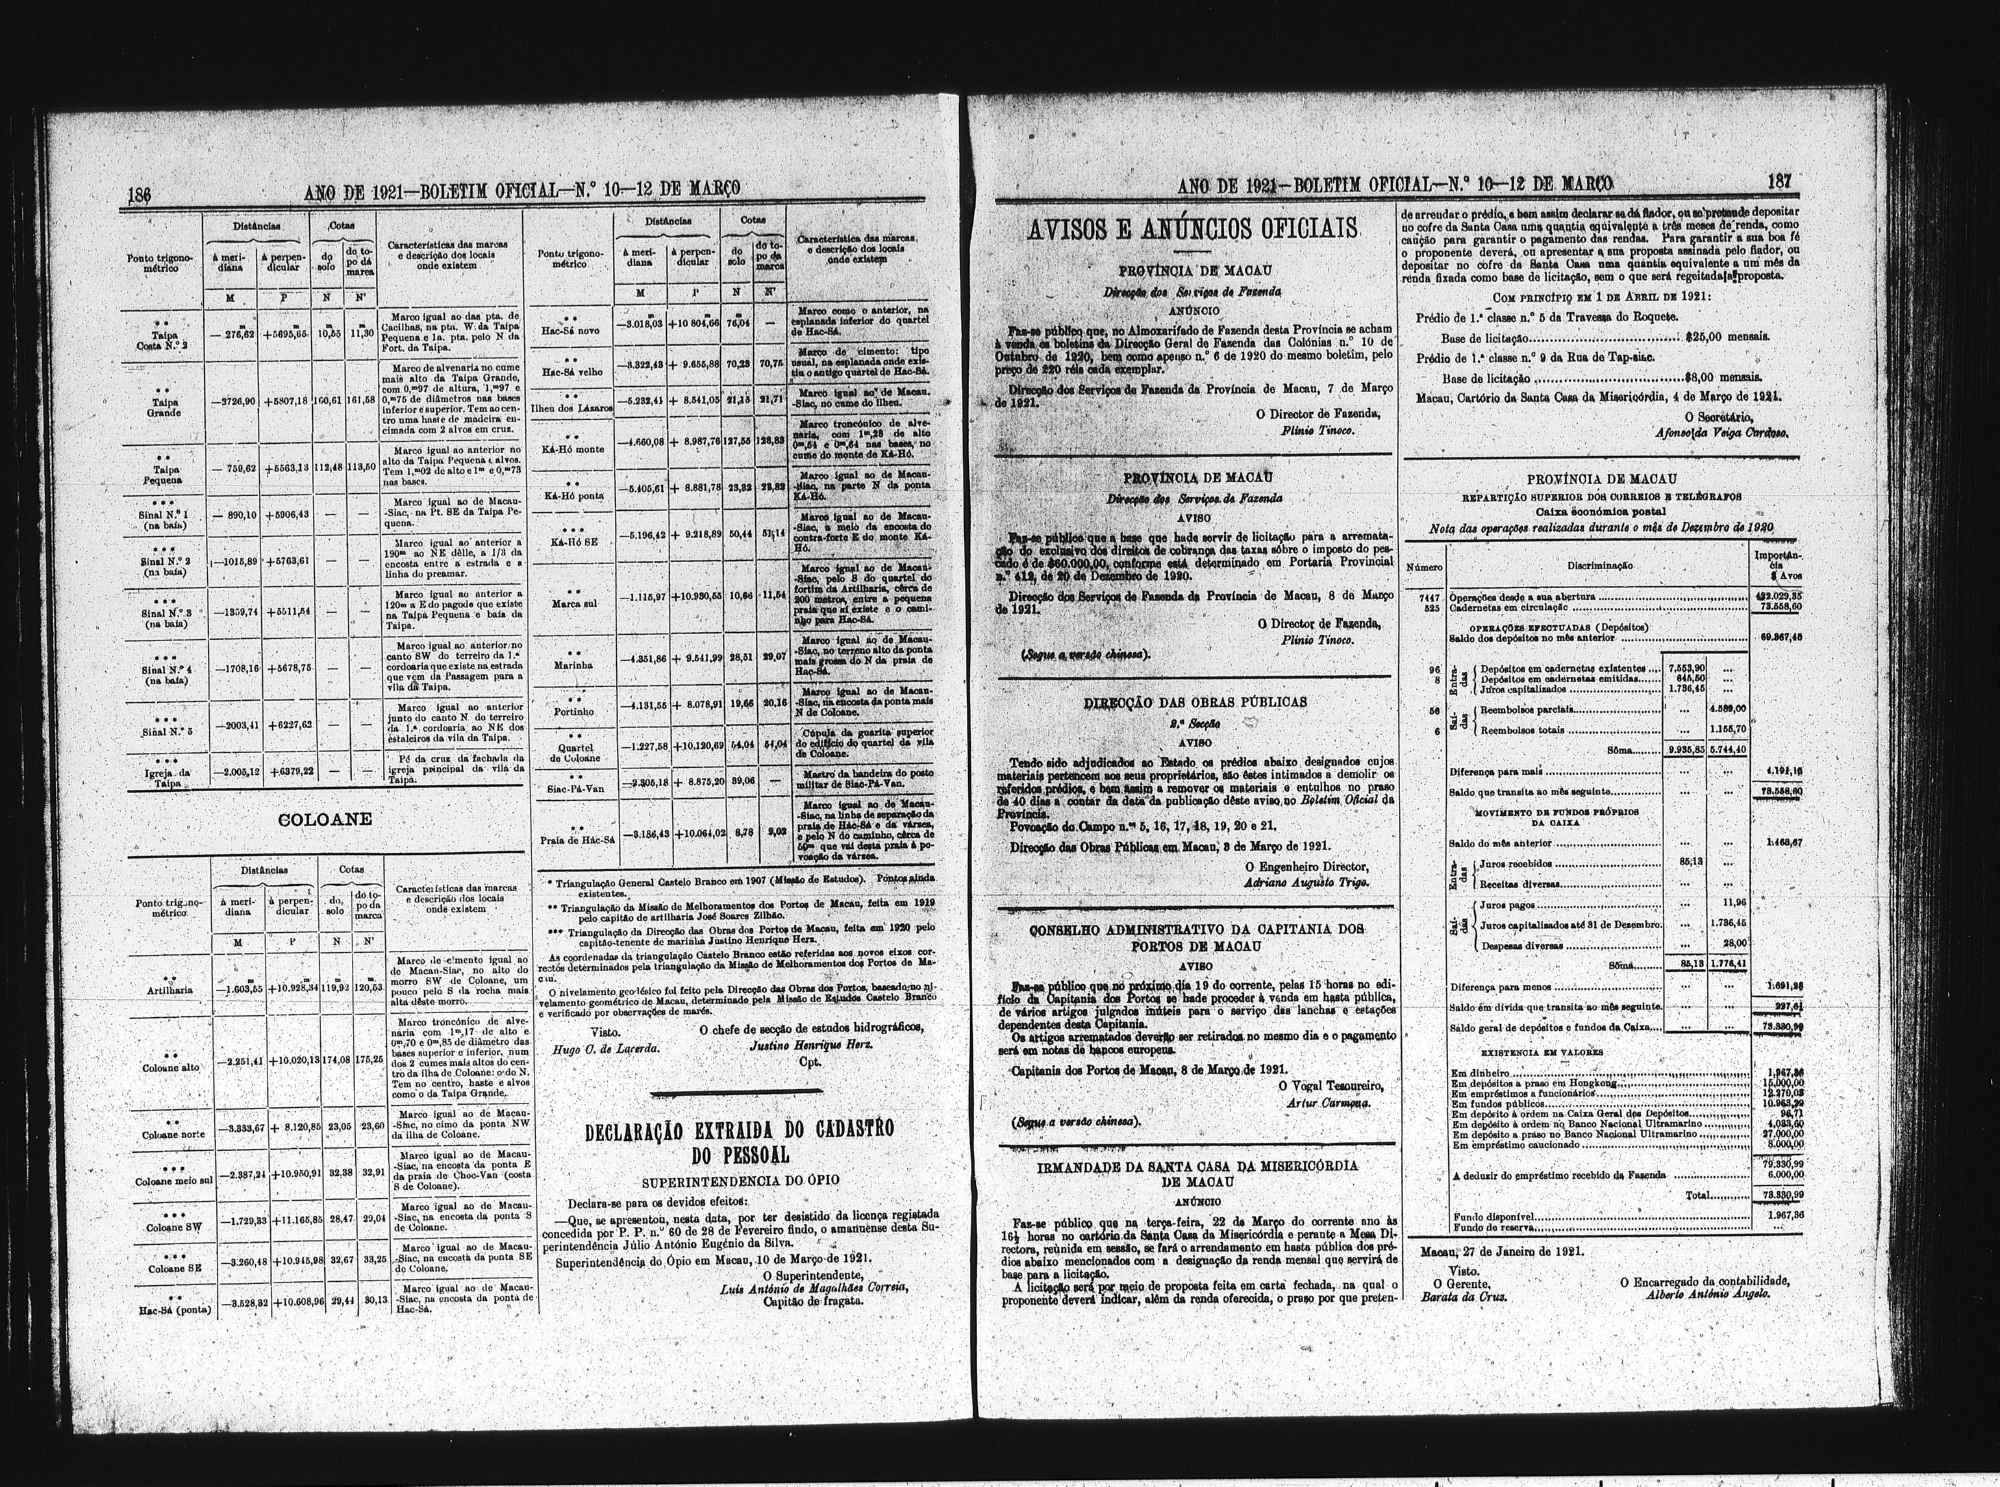 186
ANO DE 1921—BOLETIM OFICIAL—N.º 10—12 DE MARÇO
Ponto trigono-
métrico
Distâncias
Cotas
Características das marcas
e descrição dos locais
onde existem
à meri-
diana
à perpen-
dicular
do
solo
do to-
po da
marca
M
P
N
N'
Taipa
Costa N.º 2
— 276,62 +5695,65 10,55 11,30
Marco igual ao das pta. de
Cacilhas, na pta. W. da Taipa
Pequena e 1a. pta. pelo N da
Fort. da Taipa.
Taipa
Grande
—2726,90 +5807,18 160,61 161,58
Marco de alvenaria no cume
mais alto da Taipa Grande,
com 0,m97 de altura, 1,m97 e
0,m75 de diâmetros nas bases
inferior e superior. Tem ao cen-
tro uma haste de madeira en-
cimada com 2 alvos em cruz.
Taipa
Pequena
— 759,62 +5563,13 112,48 113,50
Marco igual ao anterior no
alto da Taipa Pequena e alvos.
Tem 1,m02 de alto e 1m e 0,m73
nas bases.
Sinal N.º 1
(na baía)
— 890,10 +5906,43 — —
Marco igual ao de Macau-
-Siac, na Pt. SE da Taipa Pe-
quena.
Sinal N.º 2
(na baía)
—1015,89 +5763,61 — —
Marco igual ao anterior a
190m ao NE dêlle, a 1/3 da
encosta entre a estrada e a
linha do preamar.
Sinal N.º 3
(na baía)
—1359,74 +5511,54 — —
Marco igual ao anterior a
120m a E do pagode que existe
na Taipa Pequena e baía da
Taipa.
Sinal N.º 4
(na baía)
—1708,16 +5678,75 — —
Marco igual ao anterior no
canto SW do terreiro da 1.ª
cordoaria que existe na estrada
que vem da Passagem para a
vila da Taipa.
Sinal N.º 5
—2003,41 +6227,62 — —
Marco igual ao anterior
junto do canto N do terreiro
da 1.ª cordoaria ao NE dos
estaleiros da vila da Taipa.
Igreja da
Taipa
—2.005,12 +6379,22 — —
Pé da cruz da fachada da
igreja principal da vila da
Taipa.
COLOANE
Ponto trigono-
métrico
Distâncias
Cotas
Características das marcas
e descrição dos locais
onde existem
à meri-
diana
à perpen-
dicular
do
solo
do to-
po da
marca
M
P
N
N'
Artilharia
—1.603,55 +10.928,34 119,92 120,53
Marco de cimento igual ao
de Macau-Siac, no alto do
morro SW de Coloane, um
pouco pelo S da rocha mais
alta dêste morro.
Coloane alto
—2.251,41 +10.020,13 174,08 175,25
Marco troncónico de alve-
naria com 1m,17 de alto e
0m,70 e 0m,85 de diâmetro das
bases superior e inferior, num
dos 2 cumes mais altos do cen-
tro da ilha de Coloane: o do N.
Tem no centro, haste e alvos
como o da Taipa Grande.
Coloane norte
—3.333,67 + 8.120,85 23,05 23,60
Marco igual ao de Macau-
-Siac, no cimo da ponta NW
da ilha de Coloane.
Coloane meio sul
—2.387,24 +10.950,91 32,38 32,91
Marco igual ao de Macau-
-Siac, na encosta da ponta E
da praia de Choc-Van (costa
S de Coloane).
Coloane SW
—1.729,33 +11.165,85 28,47 29,04
Marco igual ao de Macau-
-Siac, na encosta da ponta S
de Coloane.
Coloane SE
—3.260,48 +10.945,98 32,67 33,25
Marco igual ao de Macau-
-Siac, na encosta da ponta SE
de Coloane.
Hac-Sá (ponta)
—3.528,32 +10.608,96 29,44 30,13
Marco igual ao de Macau-
-Siac, na encosta da ponta de
Hac-Sá.
Ponto trigono-
métrico
Distâncias
Cotas
Característica das marcas
e descrição dos locais
onde existem
à meri-
diana
à perpen-
dicular
do
solo
do to-
po da
marca
M
P
N
N'
Hac-Sá novo
—3.018,03 +10 804,66 76,04 —
Marco como o anterior, na
esplanada inferior do quartel
de Hac-Sá.
Hac-Sá velho
—3.322,43 + 9.655,88 70,23 70,75
Marco de cimento: tipo
usual, na esplanada onde exis-
tia o antigo quartel de Hac-Sá.
Ilheu dos Lázaros
—5.232,41 + 8.541,05 21,15 21,71
Marco igual ao de Macau.
-Siac, no cume do ilheu.
Ká-Hó monte
—4.660,08 + 8.987,76 127,55 128,83
Marco troncónico de alve-
naria, com 1m,28 de alto
0m,54 e 0m,64 nas bases, no
cume do monte de Ká-Hó.
Ká-Hó ponta
—5.405,61 + 8.881,78 23,32 23,82
Marco igual ao de Macau-
-Siac, na parte N da ponta
Ká-Hó.
Ká-Hó SE
—5.196,42 + 9.218,89 50,44 51,14
Marco igual ao de Macau-
-Siac, a meio da encosta do
contra-forte E do monte Ká-
Hó.
Marca sul
—1.115,97 +10.930,55 10,66 11,54
Marco igual ao de Macau-
-Siac, pelo S do quartel do
fortim da Artilharia, cêrca de
200 metros, entre a pequena
praia que aí existe e o cami-
nho para Hac-Sá.
Marinha
—4.351,86 + 9.541,99 28,51 29,07
Marco igual ao de Macau-
-Siac, no terreno alto da ponta
mais grossa do N da praia de
Hac-Sá.
Portinho
—4.131,55 + 8.078,91 19,66 20,16
Marco igual ao de Macau-
-Siac, na encosta da ponta mais
N de Coloane.
Quartel
de Coloane
—1.227,58 +10.120,69 54,04 54,04
Cúpula da guarita superior
do edifício do quartel da vila
de Coloane.
Siac-Pá-Van
—2.305,18 + 8.875,20 39,06 —
Mastro da bandeira do posto
militar de Siac-Pá-Van.
Praia de Hác-Sá
—3.186,43 +10.064,02 8,78 9,03
Marco igual ao de Macau-
-Siac, na linha de separação da
praia de Hác-Sá e da várzea,
e pelo N do caminho, cêrca de
50m que vai desta praia à po-
voação da várzea.
* Triangulação General Castelo Branco em 1907 (Missão de Estudos). Pontos ainda
existentes.
** Triangulação da Missão de Melhoramentos dos Portos de Macau, feita em 1919
pelo capitão de artilharia José Soares Zilhão.
*** Triangulação da Direcção das Obras dos Portos de Macau, feita em 1920 pelo
capitão-tenente de marinha Justino Henrique Herz.
As coordenadas da triangulação Castelo Branco estão referidas aos novos eixos cor-
rectos determinados pela triangulação da Missão de Melhoramentos dos Portos de Ma-
cau.
O nivelamento geodésico foi feito pela Direcção das Obras dos Portos, baseado no ni-
velamento geométrico de Macau, determinado pela Missão de Estudos Castelo Branco
e verificado por observações de marés.
Visto.
Hugo C. de Lacerda.
O chefe de secção de estudos hidrográficos,
Justino Henrique Herz.
Cpt.
DECLARAÇÃO EXTRAIDA DO CADASTRO
DO PESSOAL
SUPERINTENDENCIA DO ÓPIO
Declara-se para os devidos efeitos:
—Que, se apresentou, nesta data, por ter desistido da licença registada
concedida por P. P. n.º 60 de 28 de Fevereiro findo, o amanuense desta Su-
perintendência Júlio António Eugénio da Silva.
Superintendência do Ópio em Macau, 10 de Março de 1921.
O Superintendente,
Luís António de Magalhães Correia,
Capitão de fragata.
ANO DE 1921—BOLETIM OFICIAL—N.º 10—12 DE MARÇO
187
AVISOS E ANÚNCIOS OFICIAIS
PROVÍNCIA DE MACAU
Direcção dos Serviços de Fazenda
ANÚNCIO
Faz-se público que, no Almoxarifado de Fazenda desta Província se acham
à venda os boletins da Direcção Geral de Fazenda das Colónias n.º 10 de
Outubro de 1920, bem como apenso n.º 6 de 1920 do mesmo boletim, pelo
preço de 220 réis cada exemplar.
Direcção dos Serviços de Fazenda da Província de Macau, 7 de Março
de 1921.
O Director de Fazenda,
Plínio Tinoco.
PROVÍNCIA DE MACAU
Direcção dos Serviços de Fazenda
AVISO
Faz-se público que a base que hade servir de licitação para a arremata-
ção do exclusivo dos direitos de cobrança das taxas sôbre o imposto do pes-
cado é de $60.000,00, conforme está determinado em Portaria Provincial
n.º 412, de 20 de Dezembro de 1920.
Direcção dos Serviços de Fazenda da Província de Macau, 8 de Março
de 1921.
O Director de Fazenda,
Plínio Tinoco.
(Segue a versão chinesa).
DIRECÇÃO DAS OBRAS PÚBLICAS
2.ª Secção
AVISO
Tendo sido adjudicados ao Estado os prédios abaixo designados cujos
materiais pertencem aos seus proprietários, são êstes intimados a demolir os
referidos prédios, e bem assim a remover os materiais e entulhos no praso
de 40 dias a contar da data da publicação dêste aviso no Boletim Oficial da
Província.
Povoação do Campo n.os 5, 16, 17, 18, 19, 20 e 21.
Direcção das Obras Públicas em Macau, 3 de Março de 1921.
O Engenheiro Director,
Adriano Augusto Trigo.
CONSELHO ADMINISTRATIVO DA CAPITANIA DOS
PORTOS DE MACAU
AVISO
Faz-se público que no próximo dia 19 do corrente, pelas 15 horas no edi-
fício da Capitania dos Portos se hade proceder à venda em hasta pública,
de vários artigos julgados inúteis para o serviço das lanchas e estações
dependentes desta Capitania.
Os artigos arrematados deverão ser retirados no mesmo dia e o pagamento
será em notas de bancos europeus.
Capitania dos Portos de Macau, 8 de Março de 1921.
O Vogal Tesoureiro,
Artur Carmona.
(Segue a versão chinesa).
IRMANDADE DA SANTA CASA DA MISERICÓRDIA
DE MACAU
ANÚNCIO
Faz-se público que na terça-feira, 22 de Março do corrente ano às
16½ horas no cartório da Santa Casa da Misericórdia e perante a Mesa Di-
rectora, reùnida em sessão, se fará o arrendamento em hasta pública dos pré-
dios abaixo mencionados com a designação da renda mensal que servirá de
base para a licitação.
A licitação será por meio de proposta feita em carta fechada, na qual o
proponente deverá indicar, além da renda oferecida, o praso por que preten-
de arrendar o prédio, e bem assim declarar se dá fiador, ou se pretende depositar
no cofre da Santa Casa uma quantia equivalente a três meses de renda, como
caução para garantir o pagamento das rendas. Para garantir a sua boa fé
o proponente deverá, ou apresentar a sua proposta assinada pelo fiador, ou
depositar no cofre da Santa Casa uma quantia equivalente a um mês da
renda fixada como base de licitação, sem o que será regeitada a proposta.
COM PRINCÍPIO EM 1 DE ABRIL DE 1921:
Prédio de 1.ª classe n.º 5 da Travessa do Roquete.
Base de licitação ........ $25,00 mensais.
Prédio de 1.ª classe n.º 9 da Rua de Tap-siac.
Base de licitação ........ $8,00 mensais.
Macau, Cartório da Santa Casa da Misericórdia, 4 de Março de 1921.
O Secretário,
Afonso da Veiga Cardoso.
PROVÍNCIA DE MACAU
REPARTIÇÃO SUPERIOR DOS CORREIOS E TELÉGRAFOS
Caixa económica postal
Nota das operações realizadas durante o mês de Dezembro de 1920
Número
Discriminação
Importân-
cia
$ Avos
7447 Operações desde a sua abertura ........ 422.029,35
525 Cadernetas em circulação ........ 73.558,60
OPERAÇÕES EFECTUADAS (Depósitos)
Saldo dos depósitos no mês anterior ........ 69.367,45
Entra-
das
96 Depósitos em cadernetas existentes .... 7,553,90 ...
8 Depósitos em cadernetas emitidas...... 645,50 ...
Juros capitalizados ........ 1.736,45 ...
Saí-
das
56 Reembolsos parciais........ ... 4.589,00
6 Reembolsos totais ........ ... 1.155,70
Sôma........ 9.935,85 5.744,40
Diferença para mais ........ ... ... 4.191,15
Saldo que transita ao mês seguinte........ ... ... 73.558,60
MOVIMENTO DE FUNDOS PRÓPRIOS
DA CAIXA
Saldo do mês anterior ........ ... ... 1.463,67
Entra-
das
Juros recebidos ........ 85,13 ...
Receitas diversas........ ... ...
Saí-
das
Juros pagos ........ ... 11,96
Juros capitalizados até 31 de Dezembro. ... 1.736,45
Despesas diversas ........ ... 28,00
Sôma........ 85,13 1.776,41
Diferença para menos ........ ... ... 1.691,28
Saldo em dívida que transita ao mês seguinte. ... ... 227,61
Saldo geral de depósitos e fundos da Caixa.... ... ... 73.330,99
EXISTENCIA EM VALORES
Em dinheiro ........ 1.967,36
Em depósitos a praso em Hongkong........ 15.000,00
Em empréstimos a funcionários........ 12.270,03
Em fundos públicos........ 10.963,29
Em depósito à ordem na Caixa Geral dos Depósitos........ 96,71
Em depósito à ordem no Banco Nacional Ultramarino ........ 4.033,60
Em depósito a praso no Banco Nacional Ultramarino ........ 27.000,00
Em empréstimo caucionado ........ 8.000,00
79.330,99
A deduzir do empréstimo recebido da Fazenda ........ 6.000,00
Total........ 73.330,99
Fundo disponível........ 1.967,36
Fundo de reserva........ ...
Macau, 27 de Janeiro de 1921.
Visto.
O Gerente,
Barata da Cruz.
O Encarregado da contabilidade,
Alberto António Ângelo.